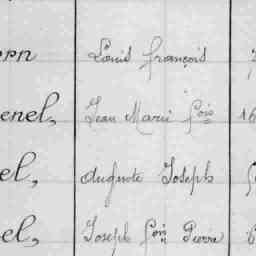 orn Louis François
enel, Jean Marie fois 16
el, Auguste Joseph
el, Joseph fois Pierre